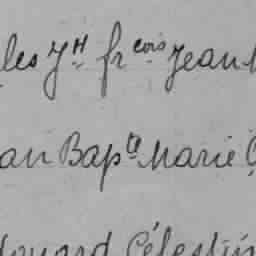 les Jh frcois Jean
an Bapte Marie
douard Célestin